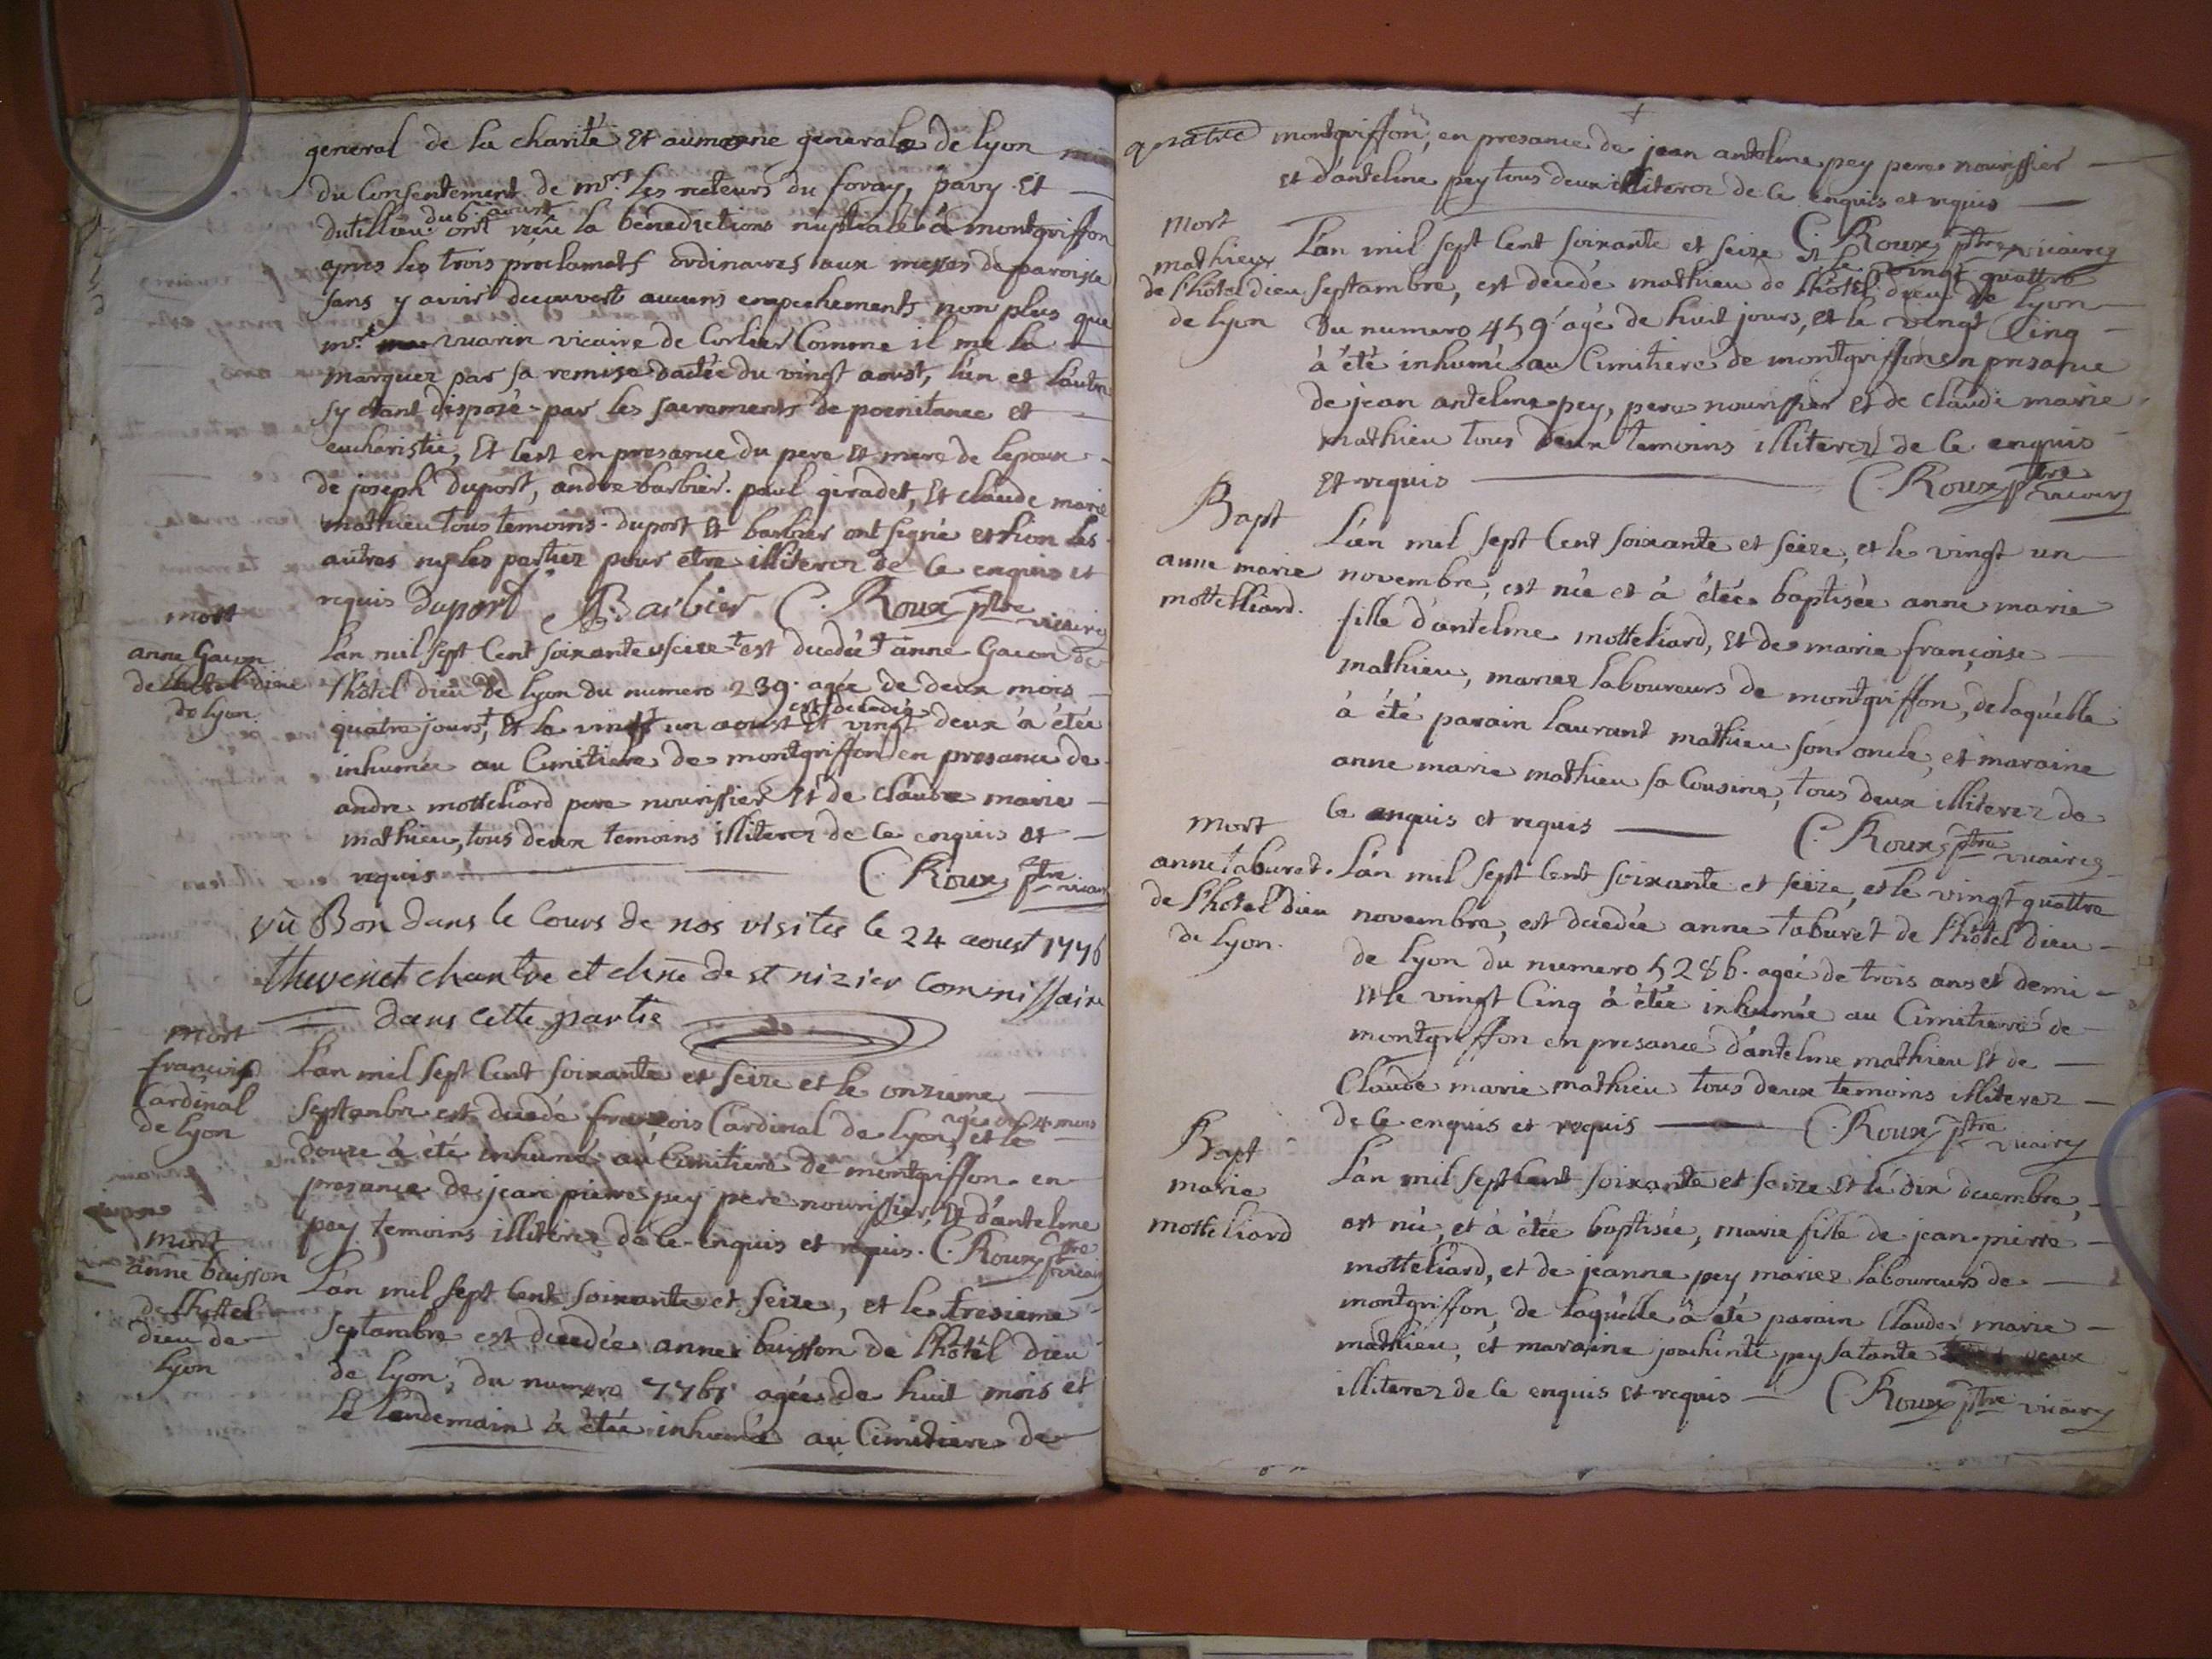 general de la charité Et aumosne generale de lyon
du Consentement de mrs. les recteurs du foray, pavy Et
dutillieu du 6. aoust ont reçû la bénédictions nuptiale à montgriffon
apres les trois proclamats ordinaires aux messes de paroisse
sans y avoir decouvert aucuns empechements non plus que
mr. vuarin vicaire de Corlier Comme il me la
marquez par sa remise dattée du vingt aoust, l'un et l'autre
sy etant disposé par les sacrements de poenitance et
eucharistie, Et c'est en presance du pere Et mere de lepoux
de joseph duport, andré barbier. paul giradet, Et claude marie
mathieu tous temoins. duport Et barbier ont signé et non les
autres ny les parties pour etre illiterez de ce enquis et
requis duport Barbier C. Roux ptre vicaire
mort
anne Gacon
de l'hotel dieu
de lyon.
L'an mil sept Cent soixante et seize est decedée anne Gacon de
l'hôtel dieu de lyon du numero 239. agée de deux mois
quatre jours, Et le vingt un aoust est decedée Et vingt deux a étée
inhumée au Cimitiere de montgriffon en presance de
andre motteliard pere nourissier Et de claude marie
mathieu, tous deux temoins illiterez de ce enquis et
requis C. Roux ptre vicaire
vû Bon dans le Cours de nos visites le 24 aoust 1776
thevenet chantre et chne de st nizier commissaire
dans cette partie
mort
françois
Cardinal
de lyon
L'an mil sept Cent soixante et seize et le onzieme
septembre est decedé françois Cardinal de lyon, agé de 4 mois et le
douze à été inhumé au Cimitiere de montgriffon en
presance de jean pierre pey pere nourissier, Et d'antelme
pey temoins illiterez de ce enquis et requis. C. Roux ptre vicaire
mort
anne buisson
de l'hottel
dieu de
lyon
L'an mil sept Cent soixante et seize, et le tresieme
septambre est decedée anne buisson de l'hôtel dieu
de lyon, du numero agée de huit mois et
le lendemain à étée inhumée au Cimitiere de
montgriffon, en presance de jean antelme pey pere nourissier
et d'antelme pey tous deux illiterez de ce enquis et requis
C. Roux ptre vicaire
mort
mathieu
de l'hôtel dieu
de lyon
L'an mil sept Cent soixante et seize Et le vingt quattre
septambre, est decedé mathieu de l'hôtel dieu de lyon
du numero 459. agé de huit jours, et le vingt Cinq
à été inhumé au Cimitiere de montgriffon en presance
de jean antelme pey, pere nourissier Et de claude marie
mathieu tous deux temoins illiterez de ce enquis
Et requis C. Roux ptre vicaire
Bapt
anne marie
mottelliard.
L'an mil sept Cent soixante et seize, et le vingt un
novembre, est née et à étée baptisée anne marie
fille d'antelme motteliard, Et de marie françoise
mathieu, mariez laboureurs de montgriffon, de laquelle
à été parain laurant mathieu son oncle, et maraine
anne marie mathieu sa Cousine, tous deux illiterez de
ce enquis et requis C. Roux ptre vicaire
mort
anne taburet.
de l'hôtel dieu
de lyon.
L'an mil sept Cent soixante et seize, et le vingt quattre
novembre, est decedée anne taburet de l'hôtel dieu
de lyon du numero 5286. agée de trois ans et demi
et le vingt Cinq à étée inhumée au Cimetiere de
montgriffon en presance d'antelme mathieu Et de
Claude marie mathieu tous deux temoins illiterez
de ce enquis et requis C. Roux ptre vicaire
Bapt
marie
motteliard
L'an mil sept Cent soixante et seize Et le dix decembre,
est née, et à étée baptisée, marie fille de jean pierre
motteliard, et de jeanne pey mariez laboureurs de
montgriffon, de laquelle à été parain Claude marie
mathieu, et maraine joachinte pey sa tante deux
illiterez de ce enquis Et requis C. Roux ptre vicaire